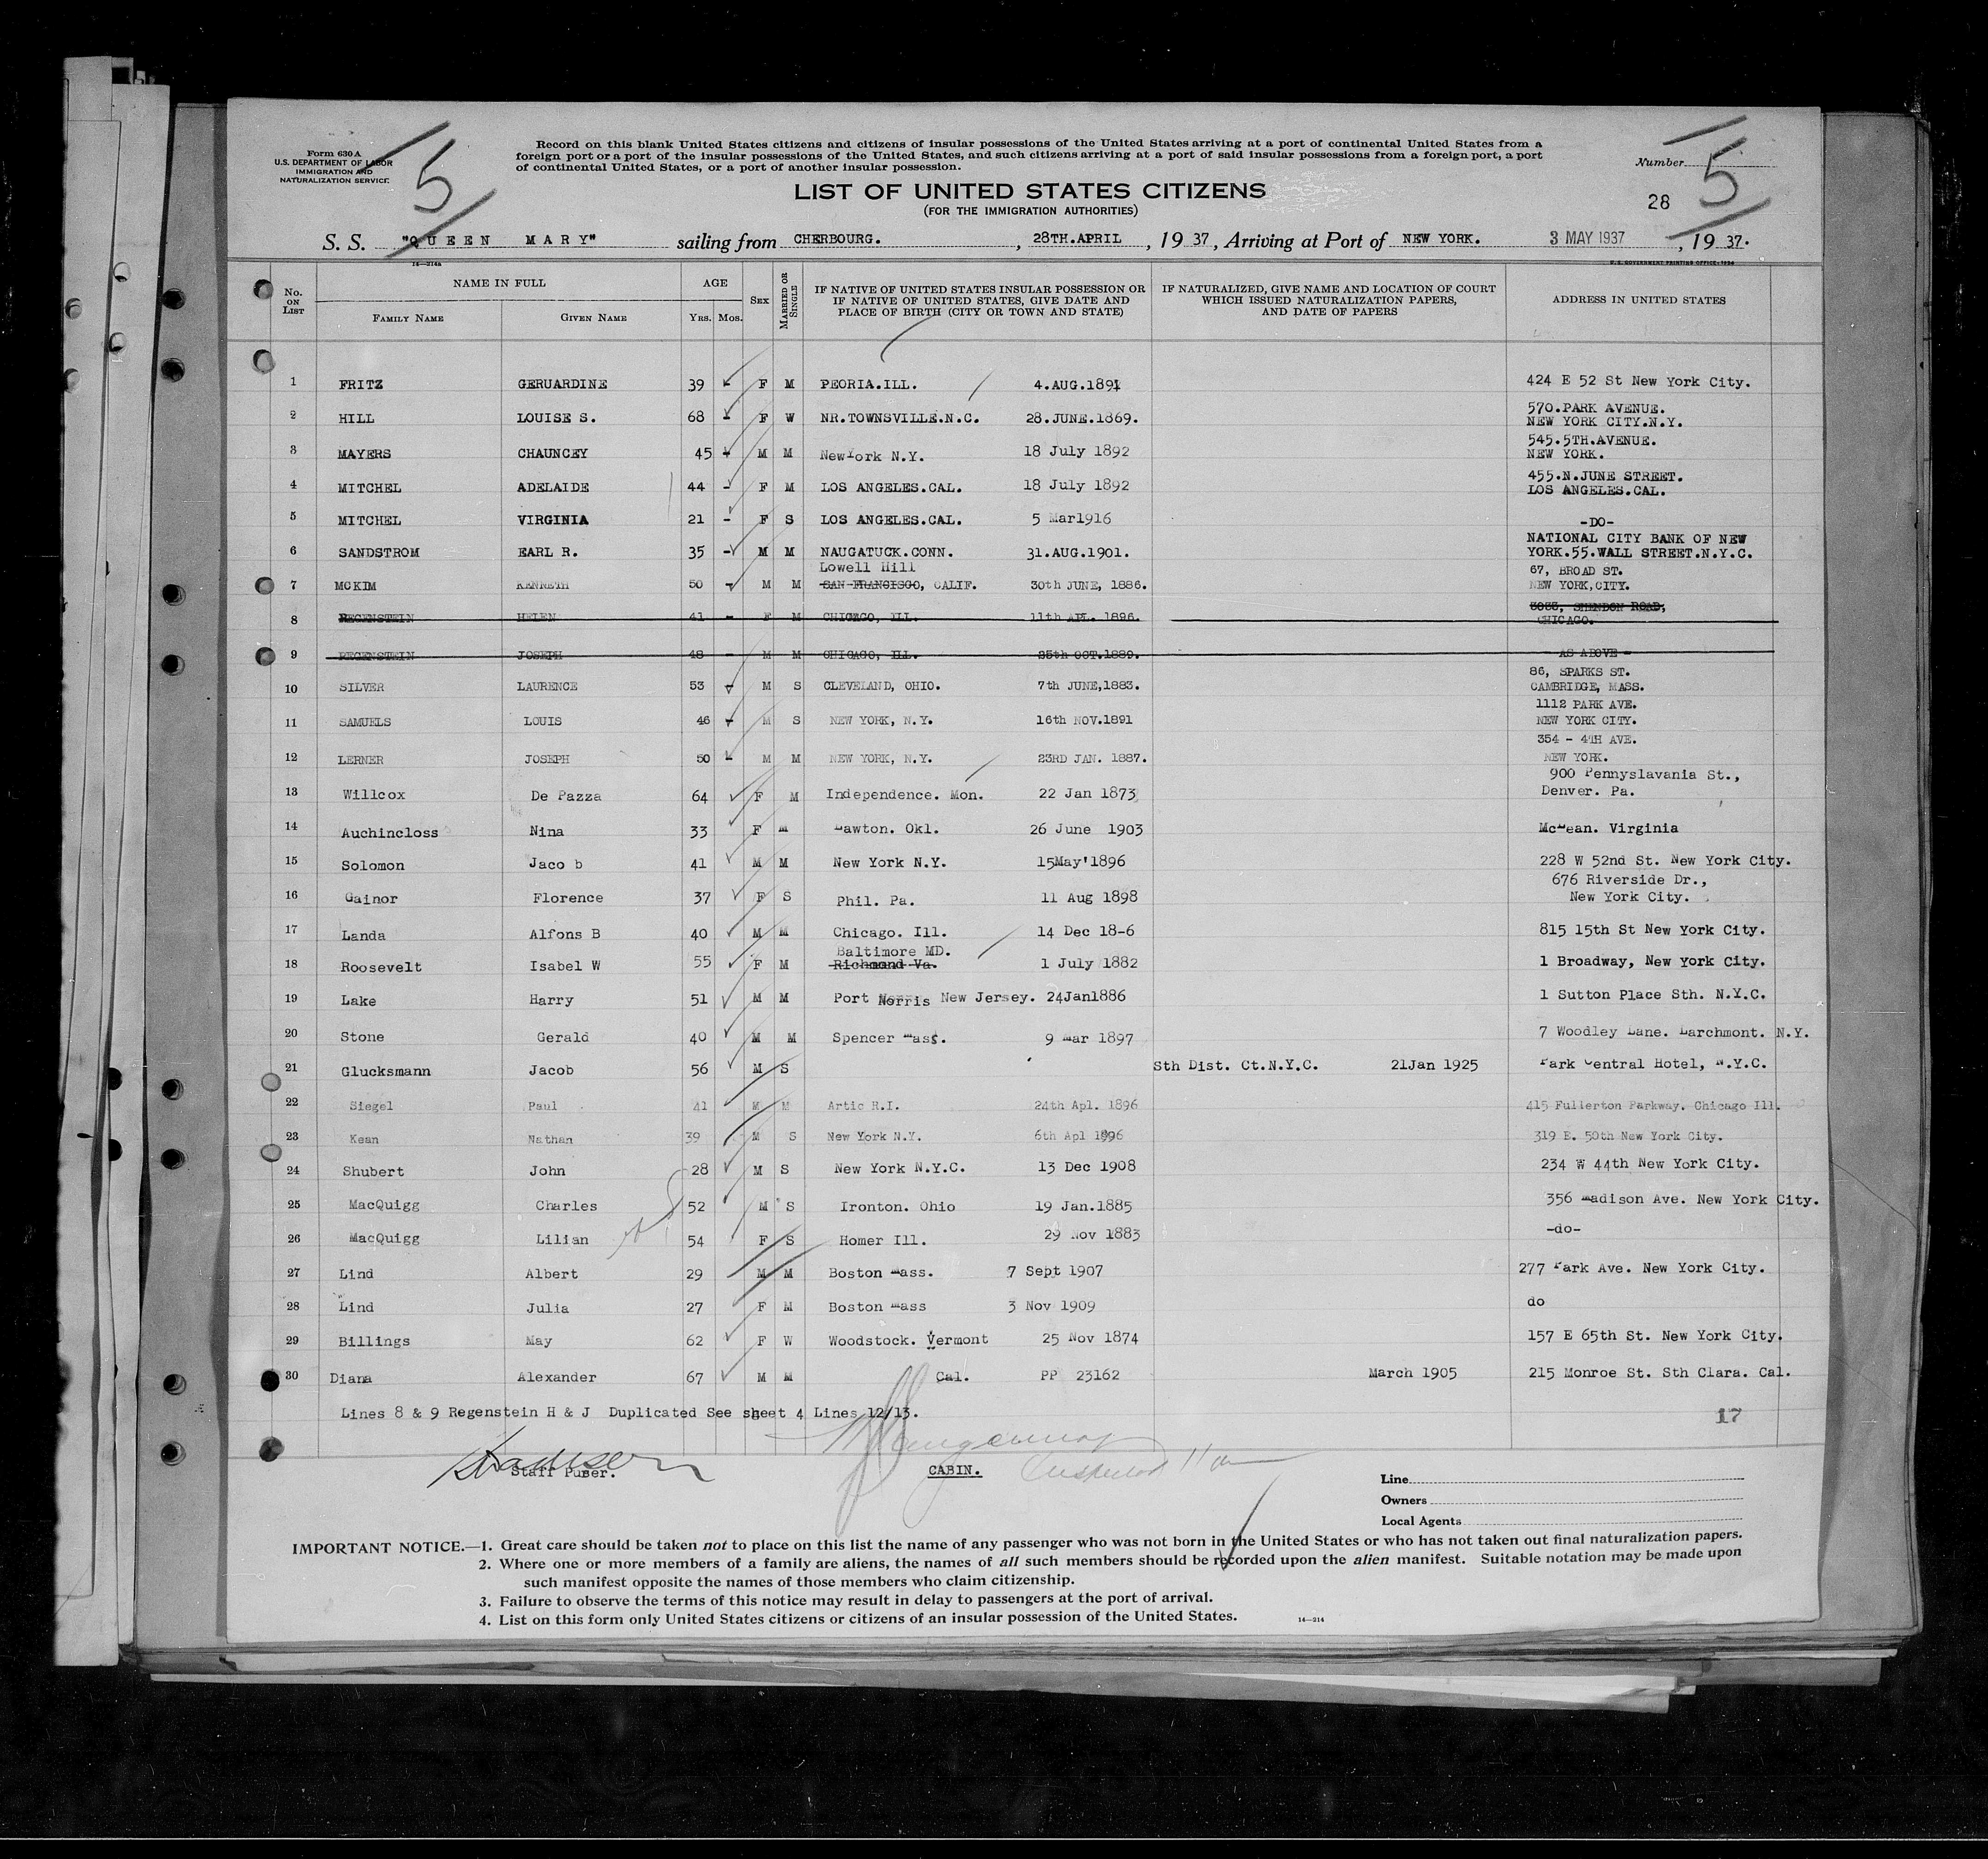 Form 630 A
U.S. DEPARTMENT OF LABOR
IMMIGRATION AND
NATURALIZATION SERVICE
5
Record on this blank United States citizens and citizens of insular possessions of the United States arriving at a port of continental United States from a
foreign port or a port of the insular possessions of the United States, and such citizens arriving at a port of said insular possessions from a foreign port, a port
of continental United States, or a port of another insular possession.
Number 5
28
LIST OF UNITED STATES CITIZENS
(FOR THE IMMIGRATION AUTHORITIES)
S. S. "QUEEN MARY" sailing from CHERBOURG. , 28TH.APRIL , 19 37, Arriving at Port of NEW YORK. 3 MAY 1937 , 19 37.
14—214a U.S. GOVERNMENT PRINTING OFFICE: 1934
No. ON LIST NAME IN FULL AGE SEX MARRIED OR SINGLE IF NATIVE OF UNITED STATES INSULAR POSSESSION OR IF NATIVE OF UNITED STATES, GIVE DATE AND PLACE OF BIRTH (CITY OR TOWN AND STATE) IF NATURALIZED, GIVE NAME AND LOCATION OF COURT WHICH ISSUED NATURALIZATION PAPERS, AND DATE OF PAPERS ADDRESS IN UNITED STATES
FAMILY NAME GIVEN NAME Yrs. Mos.
1 FRITZ GERUARDINE 39 - F M PEORIA.ILL. 4.AUG.1891 424 E 52 St New York City.
2 HILL LOUISE S. 68 - F W NR.TOWNSVILLE.N.C. 28.JUNE.1869. 570.PARK AVENUE.
NEW YORK CITY.N.Y.
3 MAYERS CHAUNCEY 45 - M M NewYork N.Y. 18 July 1892 545.5TH.AVENUE.
NEW YORK.
4 MITCHEL ADELAIDE 44 - F M LOS ANGELES.CAL. 18 July 1892 455.N.JUNE STREET.
LOS ANGELES.CAL.
5 MITCHEL VIRGINIA 21 - F S LOS ANGELES.CAL. 5 Mar1916 -DO-
6 SANDSTROM EARL R. 35 - M M NAUGATUCK.CONN. 31.AUG.1901. NATIONAL CITY BANK OF NEW
YORK.55.WALL STREET.N.Y.C.
Lowell Hill
7 MCKIM KENNETH 50 - M M SAN FRANCISCO, CALIF. 30th JUNE, 1886. 67, BROAD ST.
NEW YORK,CITY.
8 REGENSTEIN HELEN 41 - F M CHICAGO, ILL. 11th APL. 1896. ROAD,
CHICAGO.
9 REGENSTEIN JOSEPH 48 - M M CHICAGO, ILL. 25th OCT.1889. AS ABOVE -
10 SILVER LAURENCE 53 - M S CLEVELAND, OHIO. 7th JUNE,1883. 86, SPARKS ST.
CAMBRIDGE, MASS.
11 SAMUELS LOUIS 46 - M S NEW YORK, N.Y. 16th NOV.1891 1112 PARK AVE.
NEW YORK CITY.
12 LERNER JOSEPH 50 - M M NEW YORK, N.Y. 23RD JAN. 1887. 354 - 4TH AVE.
NEW YORK.
13 Willcox De Pazza 64 F M Independence. Mon. 22 Jan 1873 900 Pennyslavania St.,
Denver. Pa.
14 Auchincloss Nina 33 F M Lawton. Okl. 26 June 1903 McLean. Virginia
15 Solomon Jaco b 41 M M New York N.Y. 15May'1896 228 W 52nd St. New York City.
16 Gainor Florence 37 F S Phil. Pa. 11 Aug 1898 676 Riverside Dr.,
New York City.
17 Landa Alfons B 40 M M Chicago. Ill. 14 Dec 18-6 815 15th St New York City.
Baltimore MD.
18 Roosevelt Isabel W 55 F M Richmond Va. 1 July 1882 1 Broadway, New York City.
19 Lake Harry 51 M M Port Norris New Jersey. 24Jan1886 1 Sutton Place Sth. N.Y.C.
20 Stone Gerald 40 M M Spencer Mass. 9 Mar 1897 7 Woodley Lane. Larchmont. N.Y.
21 Glucksmann Jacob 56 M S Sth Dist. Ct.N.Y.C. 21Jan 1925 Park Central Hotel, N.Y.C.
22 Siegel Paul 41 M M Artic R.I. 24th Apl. 1896 415 Fullerton Parkway. Chicago Ill.
23 Kean Nathan 39 M S New York N.Y. 6th Apl 1896 319 E. 50th New York City.
24 Shubert John 28 M S New York N.Y.C. 13 Dec 1908 234 W 44th New York City.
25 MacQuigg Charles 52 M S Ironton. Ohio 19 Jan.1885 356 Madison Ave. New York City.
26 MacQuigg Lilian 54 F S Homer Ill. 29 Nov 1883 -do-
27 Lind Albert 29 M M Boston Mass. 7 Sept 1907 277 Park Ave. New York City.
28 Lind Julia 27 F M Boston Mass 3 Nov 1909 do
29 Billings May 62 F W Woodstock. Vermont 25 Nov 1874 157 E 65th St. New York City.
30 Diana Alexander 67 M M Cal. PP 23162 March 1905 215 Monroe St. Sth Clara. Cal.
Lines 8 & 9 Regenstein H & J Duplicated See sheet 4 Lines 12/13. 17
Staff Purser.
CABIN.
Line
Owners
Local Agents
IMPORTANT NOTICE.—1. Great care should be taken not to place on this list the name of any passenger who was not born in the United States or who has not taken out final naturalization papers.
2. Where one or more members of a family are aliens, the names of all such members should be recorded upon the alien manifest. Suitable notation may be made upon
such manifest opposite the names of those members who claim citizenship.
3. Failure to observe the terms of this notice may result in delay to passengers at the port of arrival.
4. List on this form only United States citizens or citizens of an insular possession of the United States. 14—214